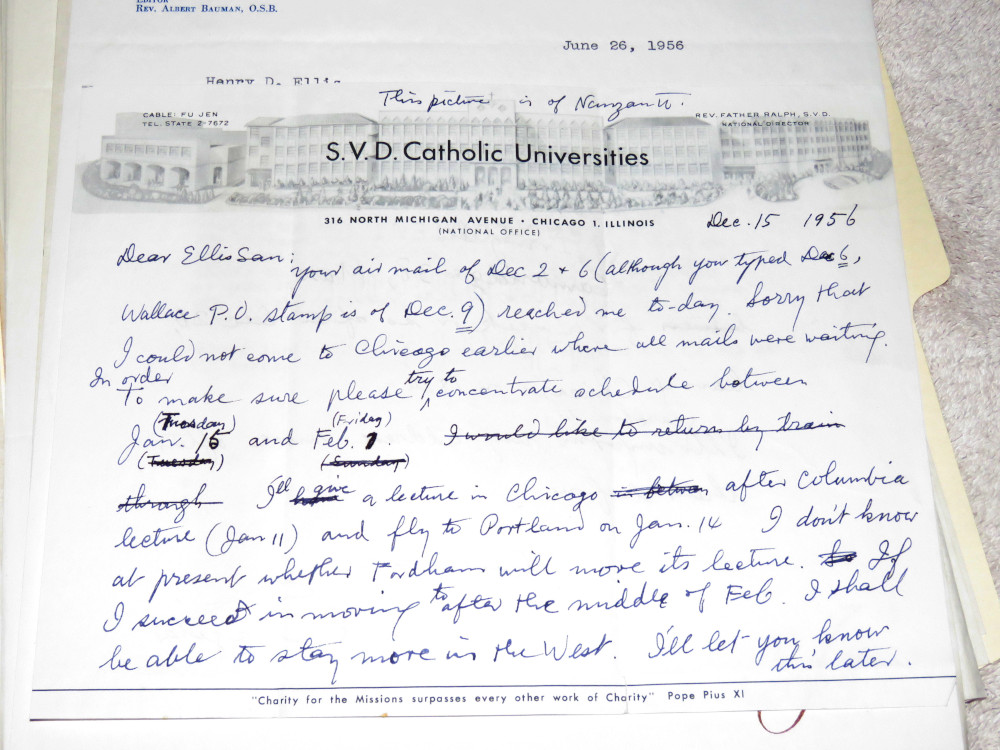 EDITOR
REV. ALBERT BAUMAN, O.S.B.
June 26, 1956
Henry D. Ellis
This picture is of Nanzan U.
CABLE: FU JEN
TEL. STATE 2-7672
REV. FATHER RALPH, S.V.D.
NATIONAL DIRECTOR
S.V.D. Catholic Universities
316 NORTH MICHIGAN AVENUE • CHICAGO 1, ILLINOIS
(NATIONAL OFFICE)
Dec. 15 1956
Dear Ellis San;
your air mail of Dec 2 + 6 (although you typed Dec 6,
Wallace P.O. stamp is of Dec. 9) reached me to-day. Sorry that
I could not come to Chicago earlier where all mails were waiting.
In order
To make sure please try to concentrate schedule between
(Tuesday) (Friday)
Jan. 15 and Feb. 1 I would like to return by train
(Tuesday) (Sunday)
through I'll give a lecture in Chicago in between after Columbia
lecture (Jan 11) and fly to Portland on Jan. 14 I don't know
at present whether Fordham will move its lecture. If
I succeed in moving to after the middle of Feb. I shall
be able to stay more in the West. I'll let you know
this later.
"Charity for the Missions surpasses every other work of Charity" Pope Pius XI